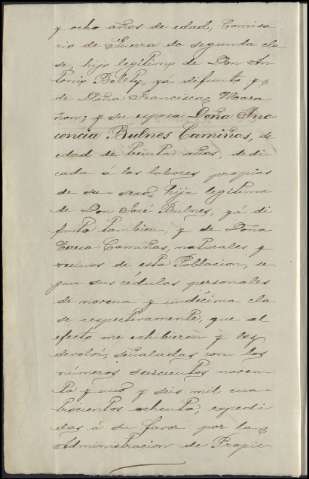 y ocho años de edad, Comisa-
rio de Guerra de segunda cla-
se, hijo legitimo de Don An-
tonio Botely, ya difunto y
de Doña Francisca
y su esposa Doña
Bulnes Camiños, de
edad de treinta años, dedi-
cada á las labores propias
de su sexo, hija legitima
de Don José Bulnes, yá di-
funto tambien, y de Doña
Teresa Camiños, naturales y
vecinos de esta Poblacion, se-
gun sus cédulas personales
de novena y undécima cla-
se respectivamente, que al
efecto me exhibieron y les
devolví, señaladas con los
números seiscientos noven-
ta y uno y seis mil cua-
trocientos ochenta, expedi-
das á su favor por la
Administracion de Propie-